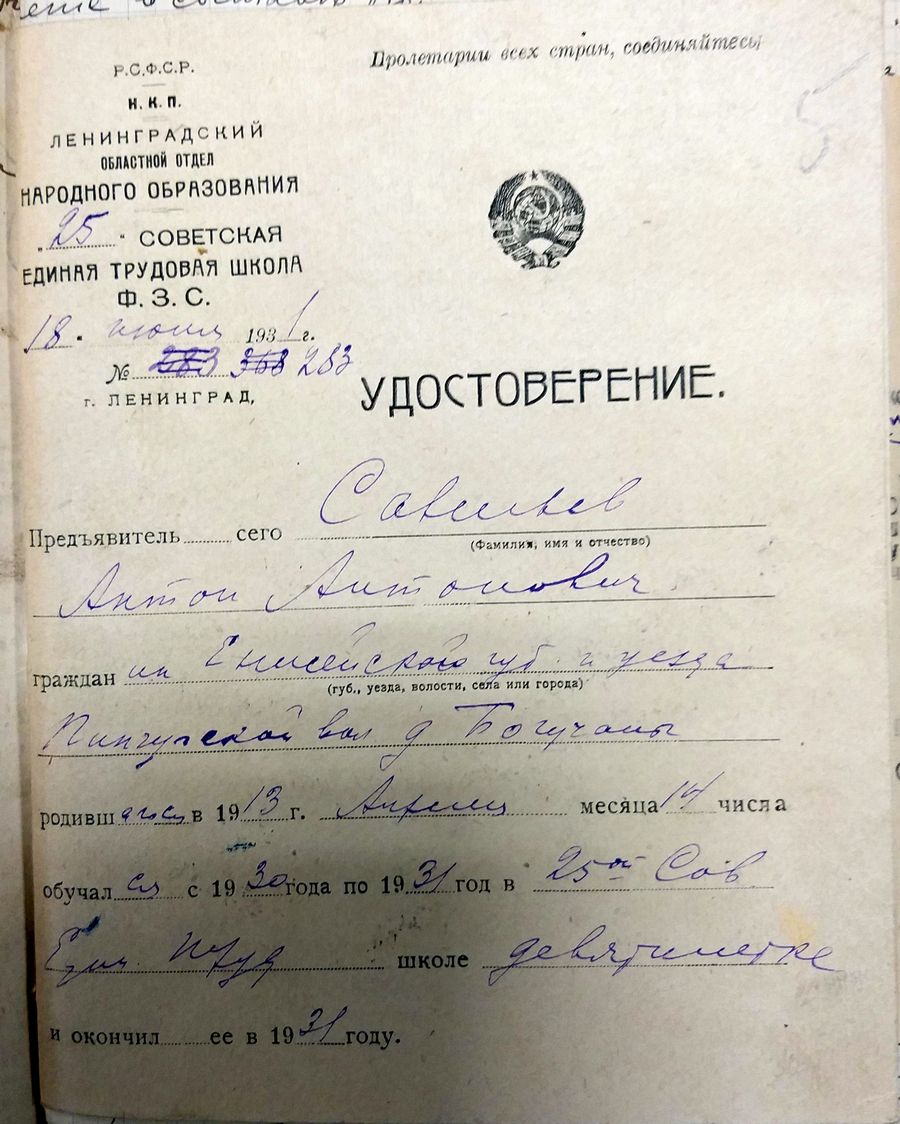 Пролетарии всех стран, соединяйтесь
Р.С.Ф.С.Р.
Н.К.П.
ЛЕНИНГРАДСКИЙ
ОБЛАСТНОЙ ОТДЕЛ
НАРОДНОГО ОБРАЗОВАНИЯ
„25“ СОВЕТСКАЯ
ЕДИНАЯ ТРУДОВАЯ ШКОЛА
Ф.З.С.
18 июня 1931 г.
№ 283 368 283
г. ЛЕНИНГРАД,
5
УДОСТОВЕРЕНИЕ.
Предъявитель сего Савельев
(Фамилия, имя и отчество)
Антон Антонович
гражданин Енисейского губ. и уезда
(губ., уезда, волости, села или города)
Пинчугской вол д Богучаны
родившегося в 1913 г. Апреля месяца 14 числа
обучался с 1930 года по 1931 год в 25ой Сов
Един Труд школе девятилетке
и окончил ее в 1931 году.